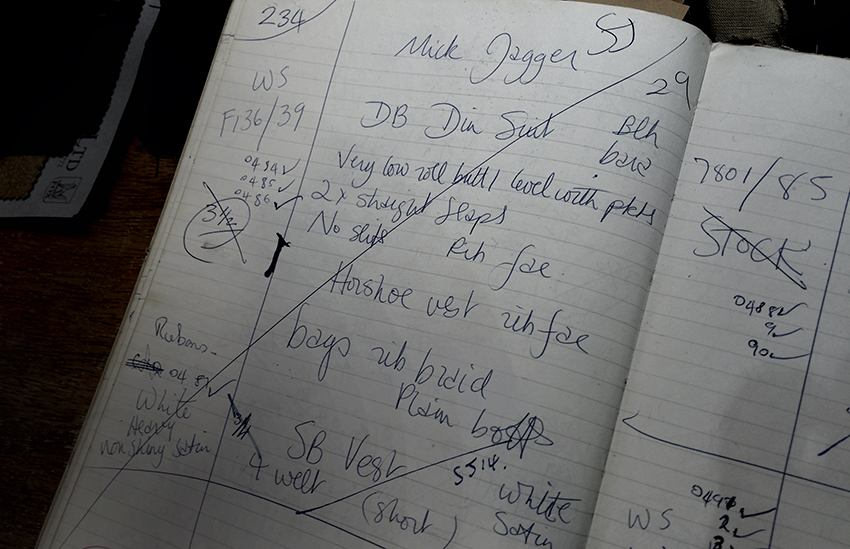 234
Mick Jagger
29
WS
F136/39
DB Din Suit
Blk
bara
0484
0485
0486
3 1/2
Very low roll butt 1 level with pkts
2 x straight flaps
No slits
Rib fae
Horshoe vest rib fae
bags rib braid
Plain
Ribons
04 87
White
Heavy
non Shiny Satin
3/4
SB Vest
4 welt
(short)
SS14.
White
Satin
7801/85
STOCK
0488
9
90
0491
2
WS